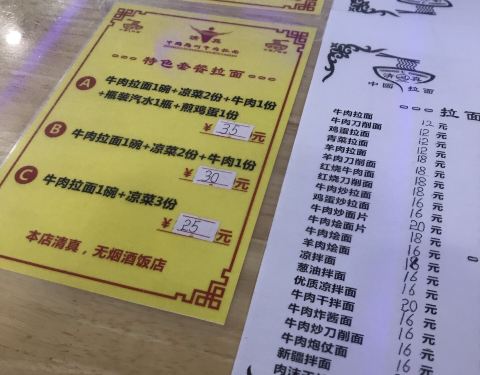 清真
特色套餐拉面
A
牛肉拉面1碗+凉菜2份+牛肉1份
+瓶装汽水1瓶+煎鸡蛋1份
¥35元
B
牛肉拉面1碗+凉菜2份+牛肉1份
¥30元
C
牛肉拉面1碗+凉菜3份
¥25元
本店清真，无烟酒饭店
清真
中國拉面
拉面
牛肉拉面
牛肉刀削面
鸡蛋拉面
青菜拉面
羊肉拉面
羊肉刀削面
红烧牛肉面
红烧刀削面
牛肉炒拉面
鸡蛋炒拉面
牛肉炒面片
牛肉烩面片
牛肉烩面
羊肉烩面
凉拌面
葱油拌面
优质凉拌面
牛肉干拌面
牛肉炸酱面
牛肉炒刀削面
牛肉炮仗面
新疆拌面
12元
12元
12元
18元
18元
18元
18元
16元
16元
20元
18元
16元
元
16元
16元
20元
16元
16元
16元
16元